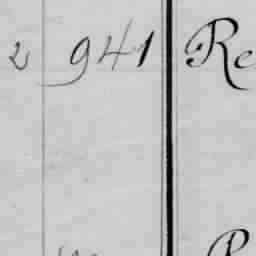 2 941 Re
R